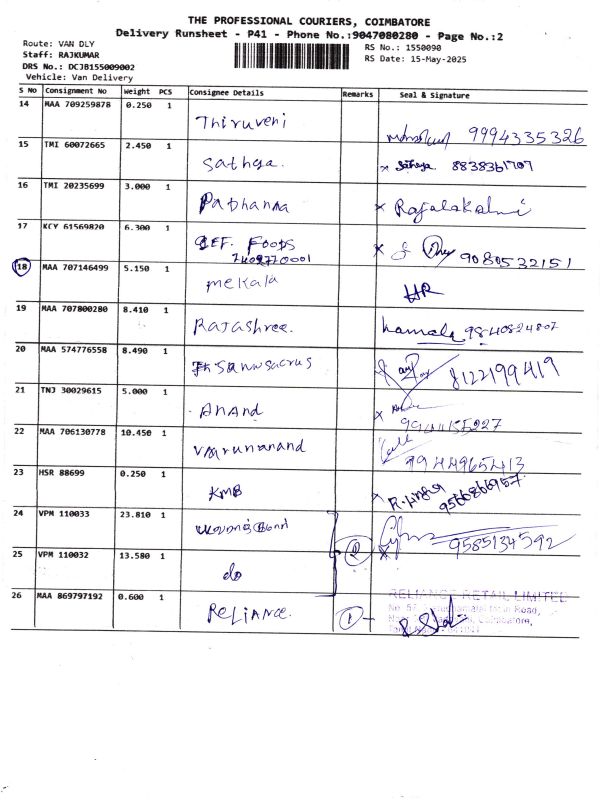 THE PROFESSIONAL COURIERS, COIMBATORE
Delivery Runsheet - P41 - Phone No.:9047080280 - Page No.:2
Route: VAN DLY
RS No.: 1550090
Staff: RAJKUMAR
RS Date: 15-May-2025
DRS No.: DCJB155009002
Vehicle: Van Delivery
S No Consignment No Weight PCS Consignee Details Remarks Seal & Signature
14 MAA 709259878 0.250 1 Thiruveni 9994335326
15 TMI 60072665 2.450 1 Sathya. Sathya 8838361707
16 TMI 20235699 3.000 1 Rajalakshmi
17 KCY 61569820 6.300 1 FOODS 9080532151
18 MAA 707146499 5.150 1 mekala HR
19 MAA 707800280 8.410 1 RAJAShree. kamala 9840824807
20 MAA 574776558 8.490 1 8122199419
21 TNJ 30029615 5.000 1 ANAND
22 MAA 706130778 10.450 1 Varunanand 9944965413
23 HSR 88699 0.250 1 KMB 9566866957
24 VPM 110033 23.810 1 9585134592
25 VPM 110032 13.580 1 do 2
26 MAA 869797192 0.600 1 RELIANCE. 1 RELIANCE RETAIL LIMITED